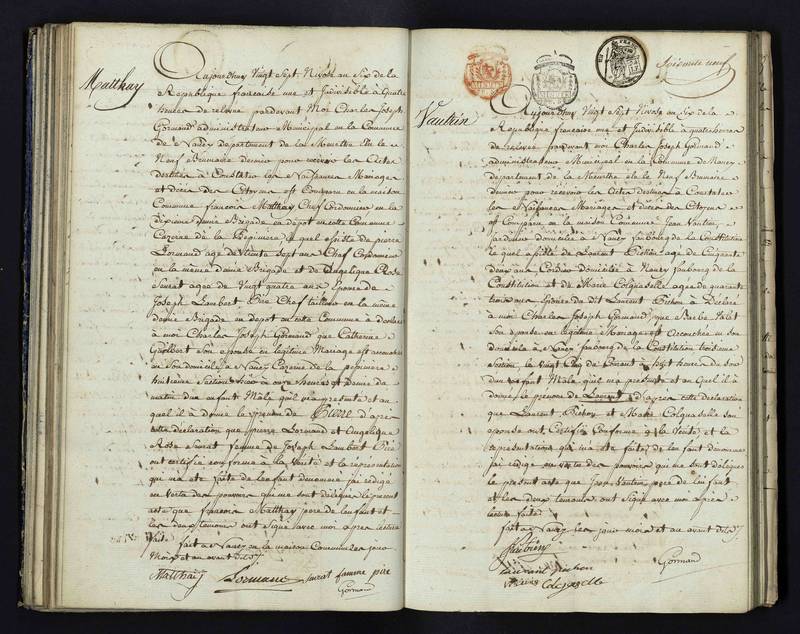 Matthay
Aujourdhuy Vingt Sept Nivose au Six de la
Republique française une et Indivisible à Quatre
heures de relevee pardevant Moi Charles Joseph
Gormand administrateur Municipal en la Commune
de Nancy Departement de la Meurthe Elu le
Neuf Brumaire dernier pour recevoir les Actes
destinés à Constater les Naissances Mariages
et décès des Citoyens est Comparu en la maison
Commune francois Matthay Chef Cordonnier en la
dixieme demie Brigade en depot en cette Commune
Cazerne de la Pépiniere le quel assisté de pierre
Lormand age de trente Sept ans Chef Cordonnier
en la meme demie Brigade et de Angelique Rose
Surat agee de Vingt quatre ans Epouse de
Joseph Lambert Piré Chef tailleur en la meme
demie Brigade en depot en cette Commune a declaré
à moi Charles Joseph Gormand que Catherine
son epouse en legitime Mariage est accouchée
en Son domicile a Nancy Cazerne de la pepiniere
huitieme Section hier à onze heures et demie du
matin d'un enfant Mâle qu'il m'a presenté et au
quel il a donné le prenom de Pierre d'apres
cette declaration que pierre Lormand et Angelique
Rose Surat femme de Joseph Lambert Piré
ont certifié conforme à la Verité et la representation
qui m'a eté faite de l'enfant denommé j'ai redigé
en Vertu des pouvoirs qui me sont délegués le présent
acte que francois Matthay pere de l'enfant et
les deux temoins ont Signé avec moi apres lecture
faite
fait a Nancy en la maison Commune les jour
Mois et an avant dits
Matthay Lormand surat famme pire
Gormand
Vautrin
Aujourdhuy Vingt Sept Nivose au Six de la
Republique française une et Indivisible à quatre heures
de relevée pardevant moi Charles Joseph Gormand
administrateur Municipal en la Commune de Nancy
département de la Meurthe élu le Neuf Brumaire
dernier pour recevoir les Actes destinés à Constater
les Naissances Mariages et décès des Citoyens
est Comparu en la maison Commune Jean Vautrin
jardinier domicilié à Nancy faubourg de la Constitution
le quel assisté de Laurent Pichon age de Cinquante
deux ans Cordier domicilié à Nancy faubourg de la
Constitution et de Marie Colquaselle agee de quarante
trois ans Epouse du dit Laurent Pichon a Déclaré
à moi Charles Joseph Gormand que Barbe
Son epouse en legitime Mariage est Accouchée en son
domicile à Nancy faubourg de la Constitution troisieme
Section le Vingt Cinq du Courant à heures du Soir
d'un enfant Mâle qu'il m'a presenté et au quel il a
donné le prenom de Laurent d'apres cette declaration
que Laurent Pichon et Marie Colquaselle Son
epouse ont Certifié Conforme à la Verité et la
representation qui m'a eté faite de l'enfant denommé
j'ai redigé en vertu des pouvoirs qui me sont délegués
le present acte que Jean Vautrin pere de l'enfant
et les deux temoins ont Signé avec moi apres
lecture faite
fait a Nancy les jour mois et an avant dits
Gormand